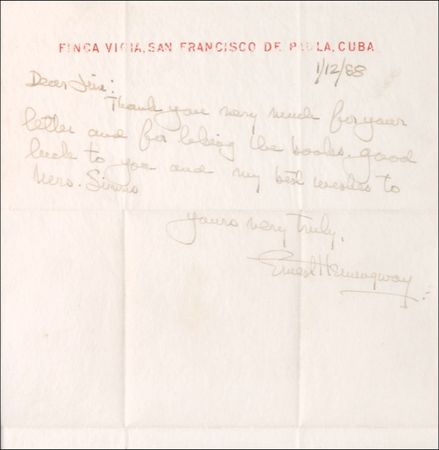 FINCA VIGIA, SAN FRANCISCO DE PAULA, CUBA
1/12/58
Dear Jim:
Thank you very much for your
letter and for liking the books. good
luck to you and my best wishes to
Mrs.
yours very truly,
Ernest Hemingway